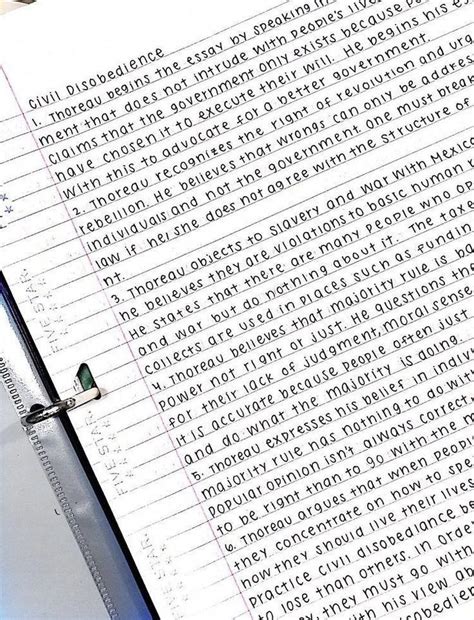 Civil Disobedience
1. Thoreau begins the essay by speaking in
ment that does not intrude with people's live
claims that the government only exists because pe
have chosen it to execute their will. He begins his es
with this to advocate for a better government.
2. Thoreau recognizes the right of revolution and urg
rebellion. He believes that wrongs can only be addres
individuals and not the government. One must brea
law if he/she does not agree with the structure of
nt.
3. Thoreau objects to slavery and war with Mexico
he believes they are violations to basic human
He states that there are many people who o
and war but do nothing about it. The taxe
collects are used in places such as fundin
4. Thoreau believes that majority rule is ba
power not right or just. He questions th
for their lack of judgment, moral sense
it is accurate because people often just
and do what the majority is doing.
5. Thoreau expresses his belief in indiv
majority rule has nothing to do wi
popular opinion isn't always correct
to be right than to go with the
6. Thoreau argues that when peop
they concentrate on how to spe
how they should live their lives
practice civil disobedience b
to lose than others. In orde
y, they must go with
with his view ab
isobedie
FIVE STAR
FIVE STAR
FIVE STAR